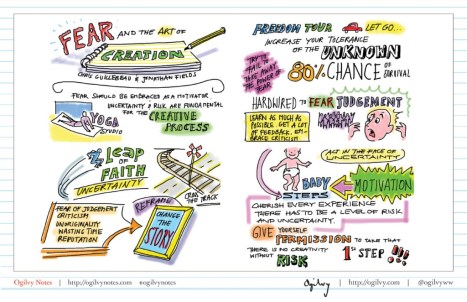 FEAR AND THE ART OF
CREATION
CHRIS GUILLEBEAU & JONATHAN FIELDS
FEAR SHOULD BE EMBRACED AS A MOTIVATOR
UNCERTAINTY & RISK ARE FUNDAMENTAL
FOR THE CREATIVE
PROCESS
YOGA
STUDIO
LEAP
OF
FAITH
UNCERTAINTY
CROSS
THE TRACK
FEAR OF JUDGEMENT
CRITICISM
UNORIGINALITY
WASTING TIME
REPUTATION
REFRAME
CHANGE
THE
STORY
FREEDOM TOUR
LET GO...
INCREASE YOUR TOLERANCE
OF THE UNKNOWN
TRY TO
FAIL
TAKE AWAY
THE POWER OF
FEAR
80% CHANCE OF
SURVIVAL
HARDWIRED TO FEAR JUDGEMENT
LEARN AS MUCH AS
POSSIBLE. GET A LOT
OF FEEDBACK. EM-
BRACE CRITICISM
ACT IN THE FACE OF
UNCERTAINTY
BABY
STEPS
MOTIVATION
CHERISH EVERY EXPERIENCE
THERE HAS TO BE A LEVEL OF RISK
AND UNCERTAINTY.
GIVE YOURSELF
PERMISSION TO TAKE THAT
1ST STEP!!!
THERE IS NO CREATIVITY
WITHOUT RISK
Ogilvy Notes | http://ogilvynotes.com #ogilvynotes
Ogilvy | http://ogilvy.com | @ogilvyww